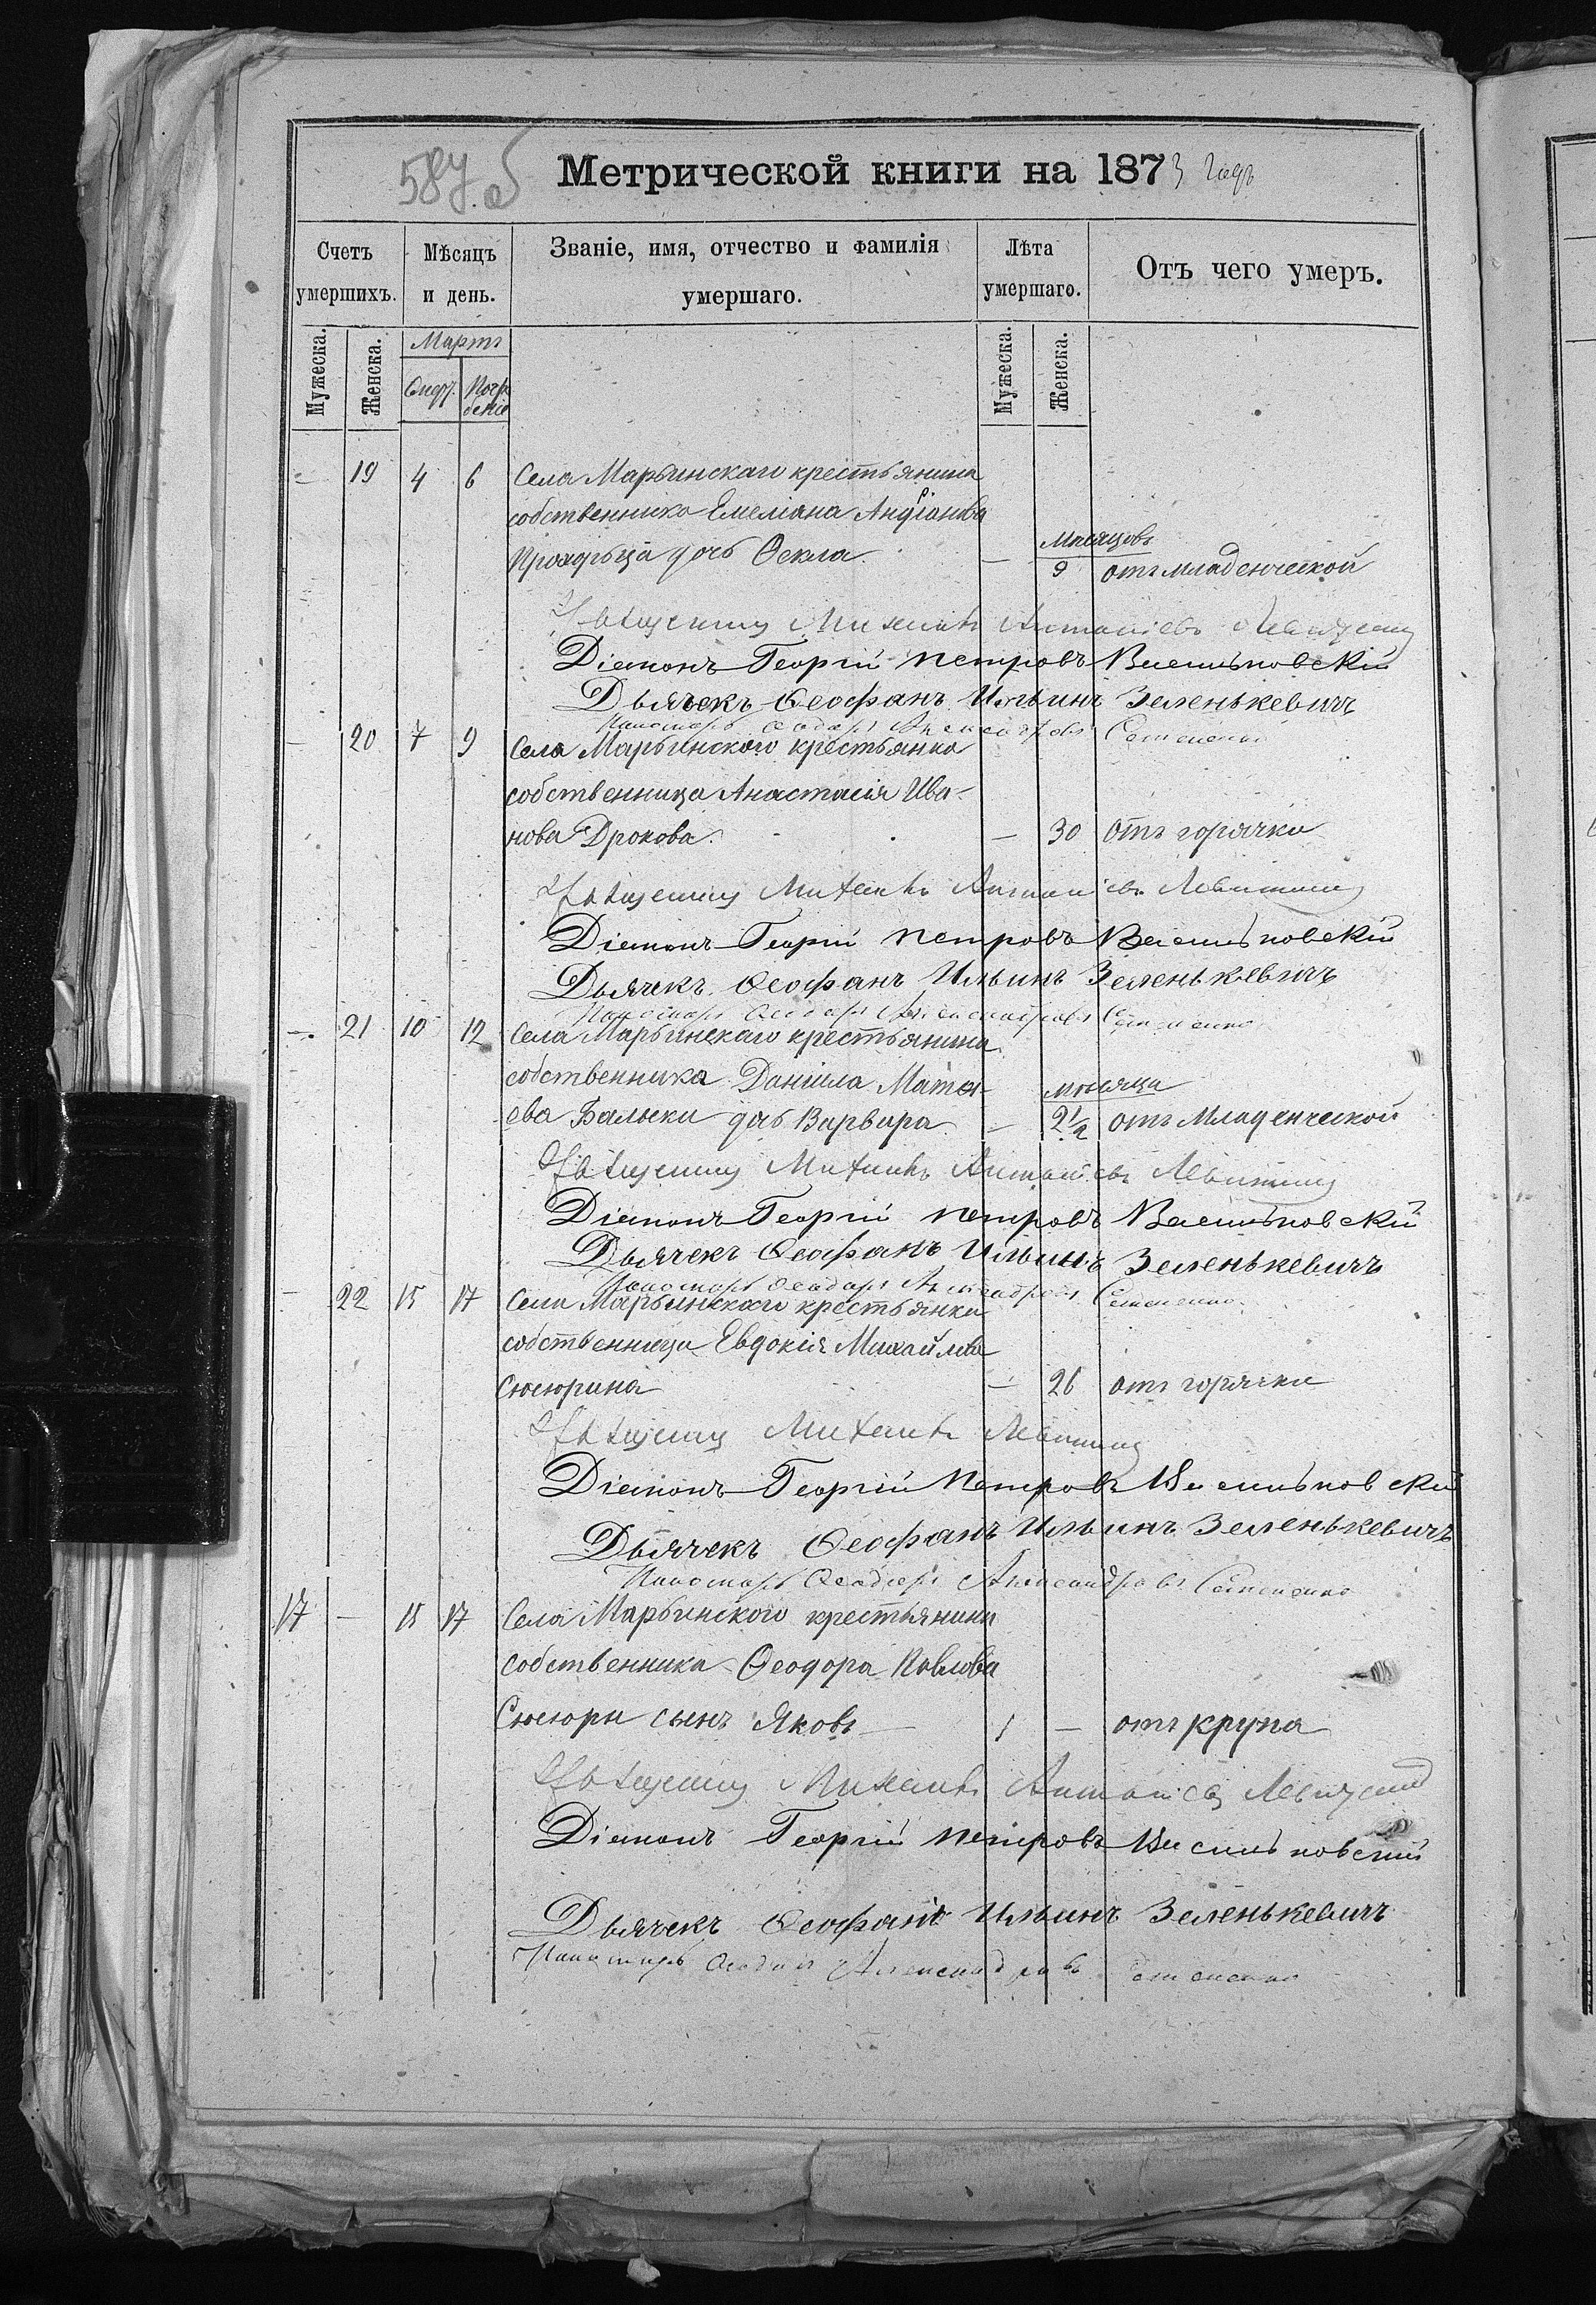 587 об
Метрической книги на 1873 годъ
Счетъ умершихъ.
Мѣсяцъ и день.
Званіе, имя, отчество и фамилія умершаго.
Лѣта умершаго.
Отъ чего умеръ.
Мужеска.
Женска.
Мартъ
Смерт.
Погребеніе
Мужеска.
Женска.
– 19 4 6 Села Марьинскаго крестьянина
собственника Емеліана
дочь Ѳекла. – мѣсяцовъ 9 отъ младенческой
Священникъ Михаилъ Антоніевъ Левитскій
Діаконъ Георгій Петровъ Васильковскій
Дьячекъ Ѳеофанъ Ильинъ Зеленькевичъ
Пономарь Ѳеодоръ Александровъ
– 20 7 9 Села Марьинскаго крестьянка
собственница Анастасія Ива-
нова Дрокова. – 30 отъ горячки
Священникъ Михаилъ Антоніевъ Левитскій
Діаконъ Георгій Петровъ Васильковскій
Дьячекъ Ѳеофанъ Ильинъ Зеленькевичъ
Пономарь Ѳеодоръ Александровъ
– 21 10 12 Села Марьинскаго крестьянина
собственника Даніила Матѳ-
ева дочь Варвара – мѣсяца 2½ отъ младенческой
Священникъ Михаилъ Антоніевъ Левитскій
Діаконъ Георгій Петровъ Васильковскій
Дьячекъ Ѳеофанъ Ильинъ Зеленькевичъ
Пономарь Ѳеодоръ Александровъ
– 22 15 17 Села Марьинскаго крестьянка
собственница Евдокія Михайлова
Сюсюрина – 26 отъ горячки
Священникъ Михаилъ Левитскій
Діаконъ Георгій Петровъ Васильковскій
Дьячекъ Ѳеофанъ Ильинъ Зеленькевичъ
Пономарь Ѳеодоръ Александровъ
17 – 15 17 Села Марьинскаго крестьянина
собственника Ѳеодора Павлова
Сюсюри сынъ Яковъ 1 – отъ крупа
Священникъ Михаилъ Антоніевъ Левитскій
Діаконъ Георгій Петровъ Васильковскій
Дьячекъ Ѳеофанъ Ильинъ Зеленькевичъ
Пономарь Ѳеодоръ Александровъ